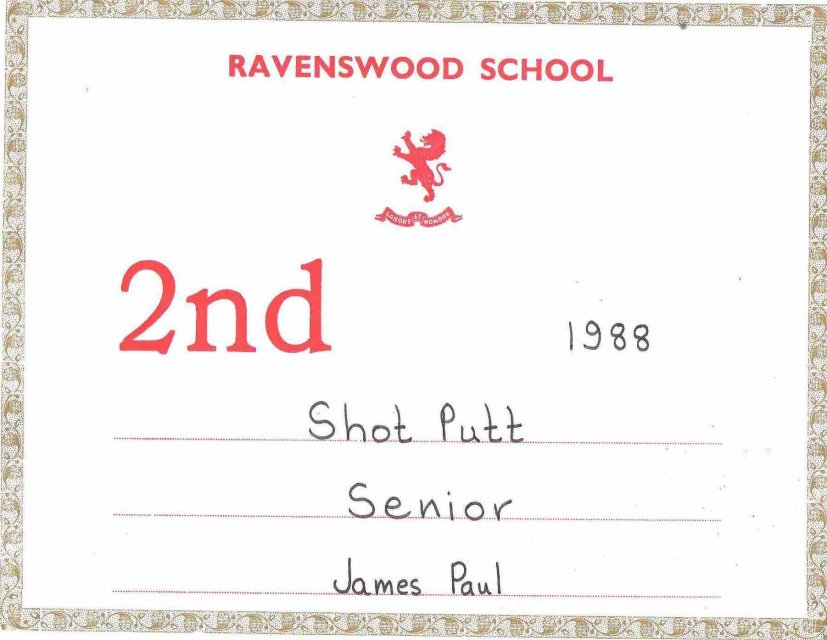 RAVENSWOOD SCHOOL
LABORE ET HONORE
2nd
1988
Shot Putt
Senior
James Paul